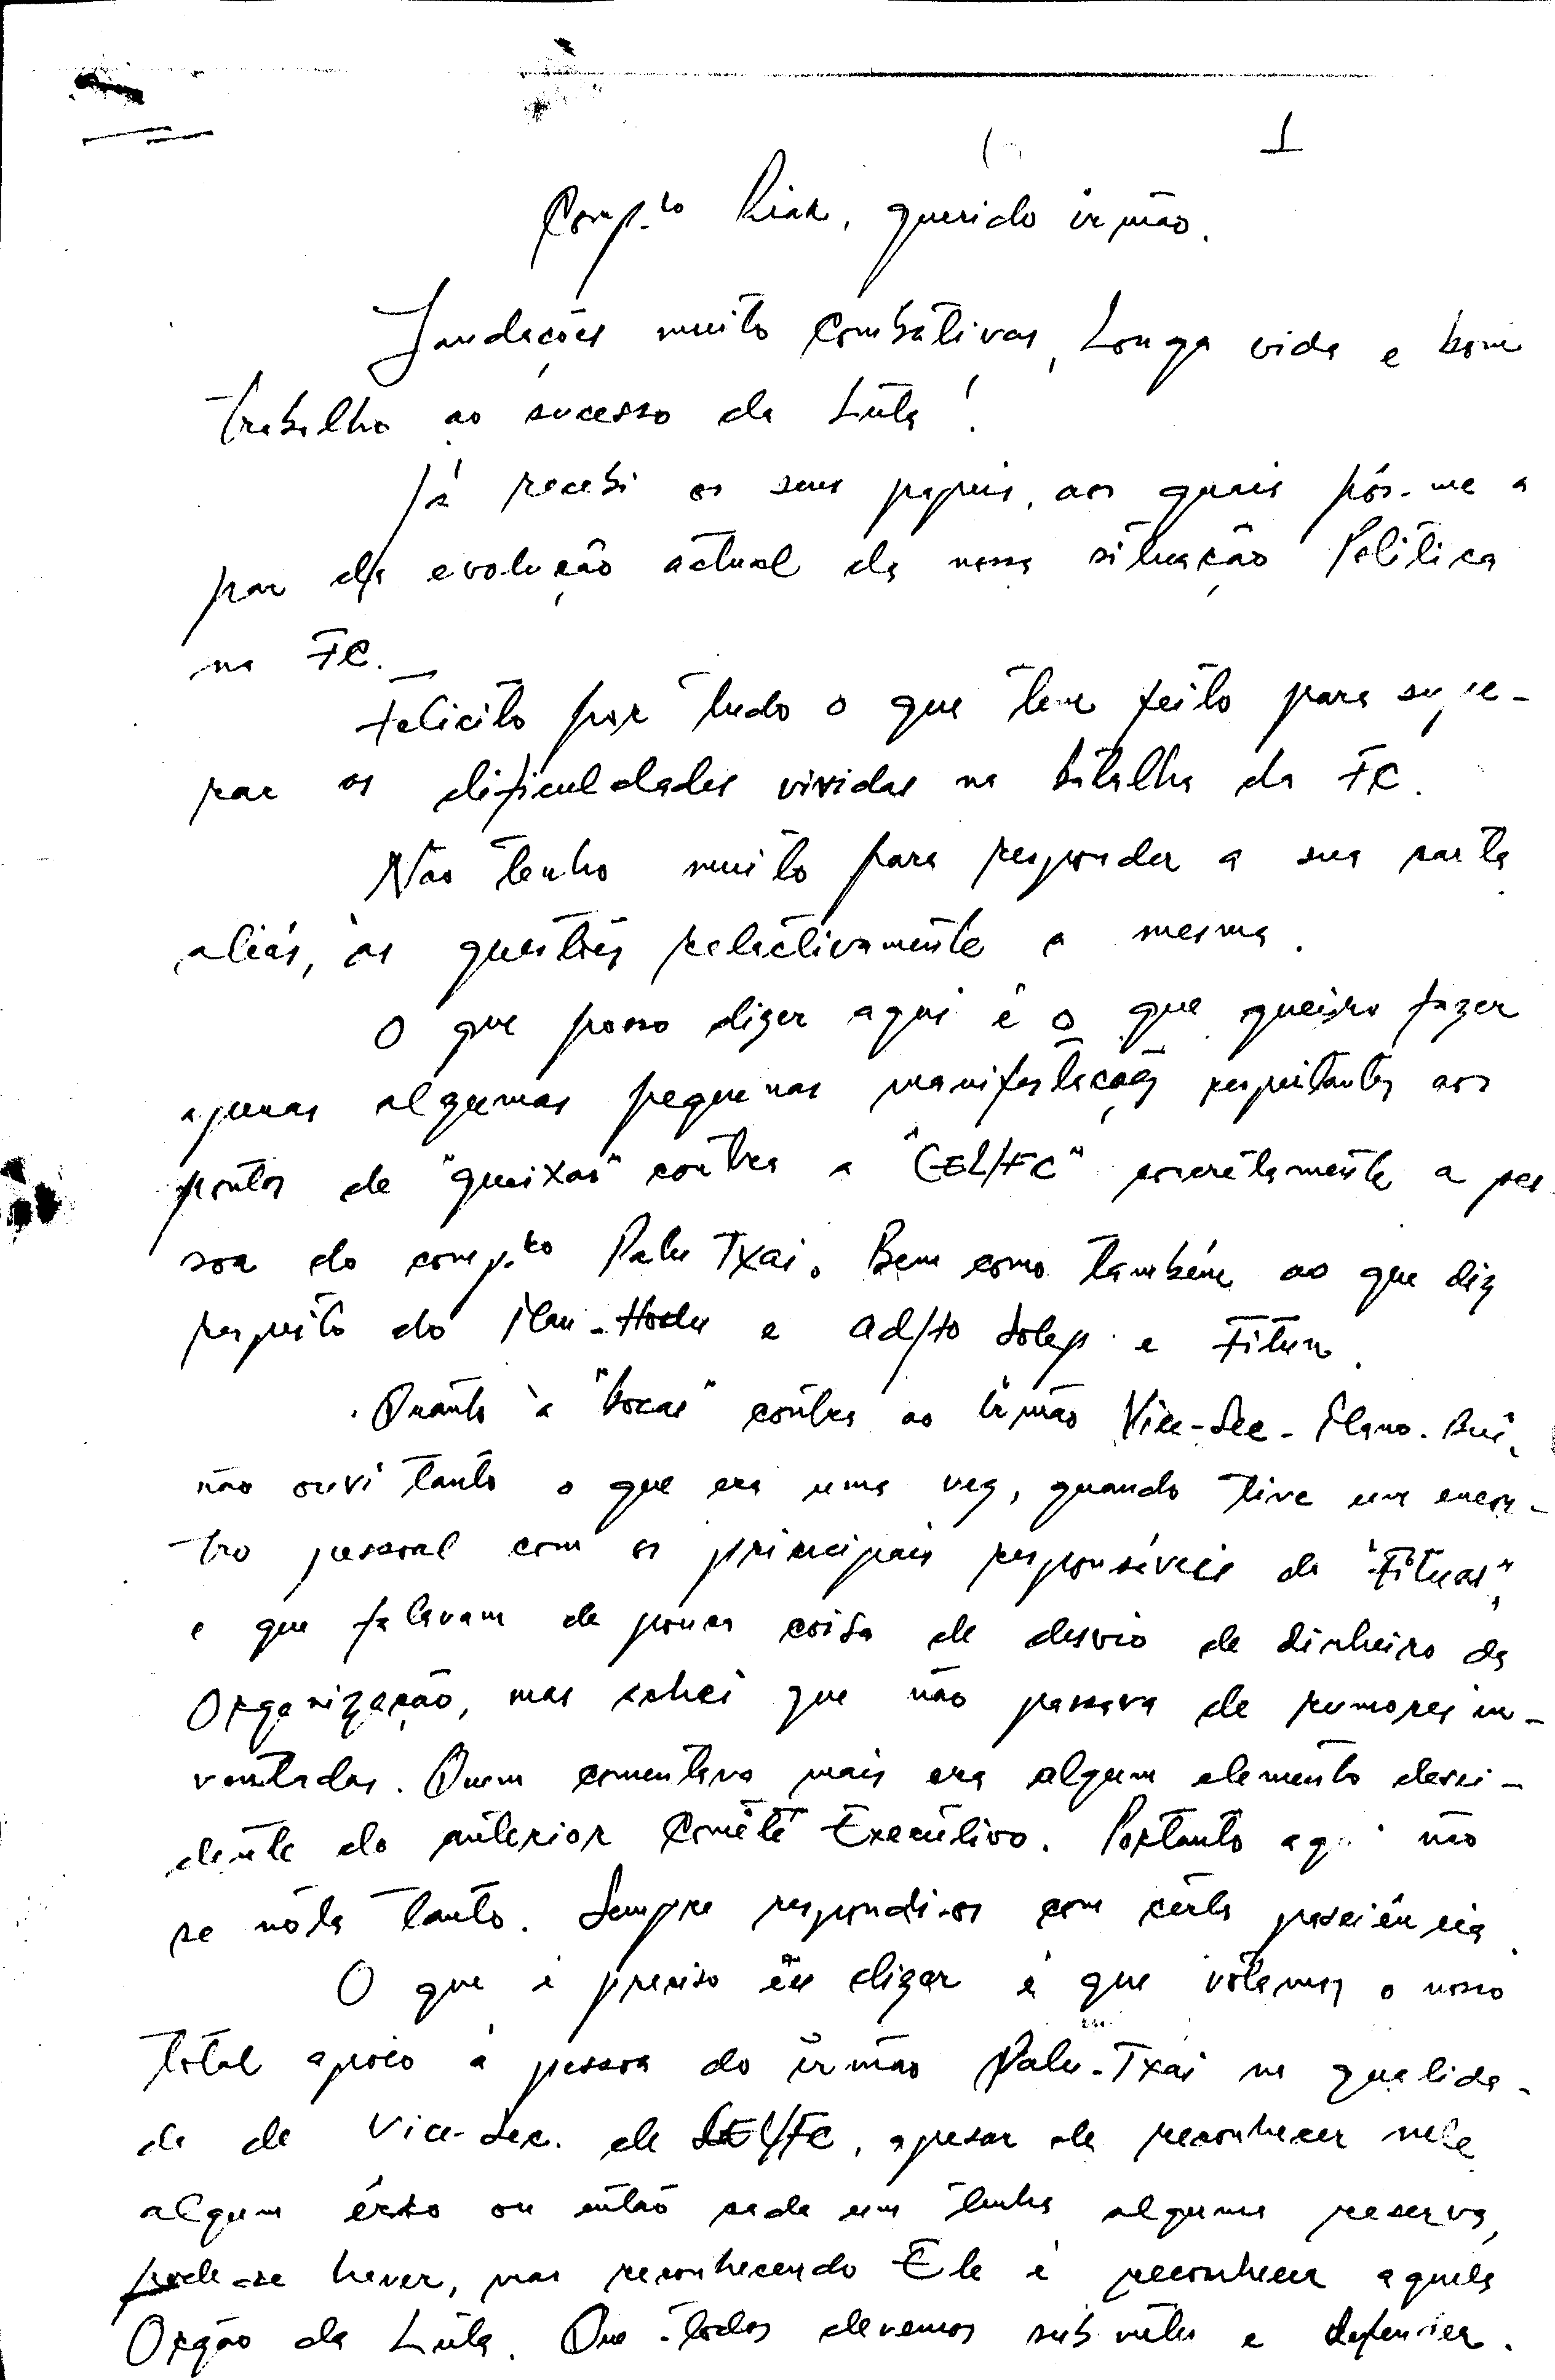 1
Comp.to Riak, querido irmão.
Saudações muito combativas, Longa vida e bom
trabalho ao sucesso da Luta!
Já recebi os seus papeis, aos quais pôs-me a
par da evolução actual da nossa situação Politica
na FC.
Felicito por tudo o que tem feito para supe-
rar as dificuldades vividas na batalha da FC.
Não tenho muito para responder a sua carta
aliás, às questões relactivamente a mesma.
O que posso dizer aqui é o que queiro fazer
apenas algumas pequenas manifestações respeitantes aos
pontos de "queixas" contra a "CEL/FC" concrétamente a pes
soa do comp.to Palu Txai. Bem como também ao que diz
respeito do Mau-Hodu e ad/to Solep e Fitun.
Quanto à "bocas" contra ao irmão Vice-Sec-
não ouvi tanto o que era uma vez, quando tive um encon-
tro pessoal com os principais responsáveis da "Fitun",
e que falavam de pouca coisa de desvio de dinheiro da
Organização, mas achei que não passava de rumores in-
ventadas. Quem comentava mais era algum elemento desci-
dente do anterior Comité Executivo. Portanto aqui não
se nóta tanto. Sempre respondi-os com cérta pasciência.
O que é preciso eu dizer é que vótamos o nosso
total apoio á pessoa do irmão Palu-Txai na qualida-
de de Vice-Sec. de CEL/FC, apesar de reconhecer nele
algum érro ou então cada um tenha alguma reserva,
pode-se haver, mas reconhecendo Ele é reconhecer aquela
Orgão da Luta. Que todos devemos submeter e defender.